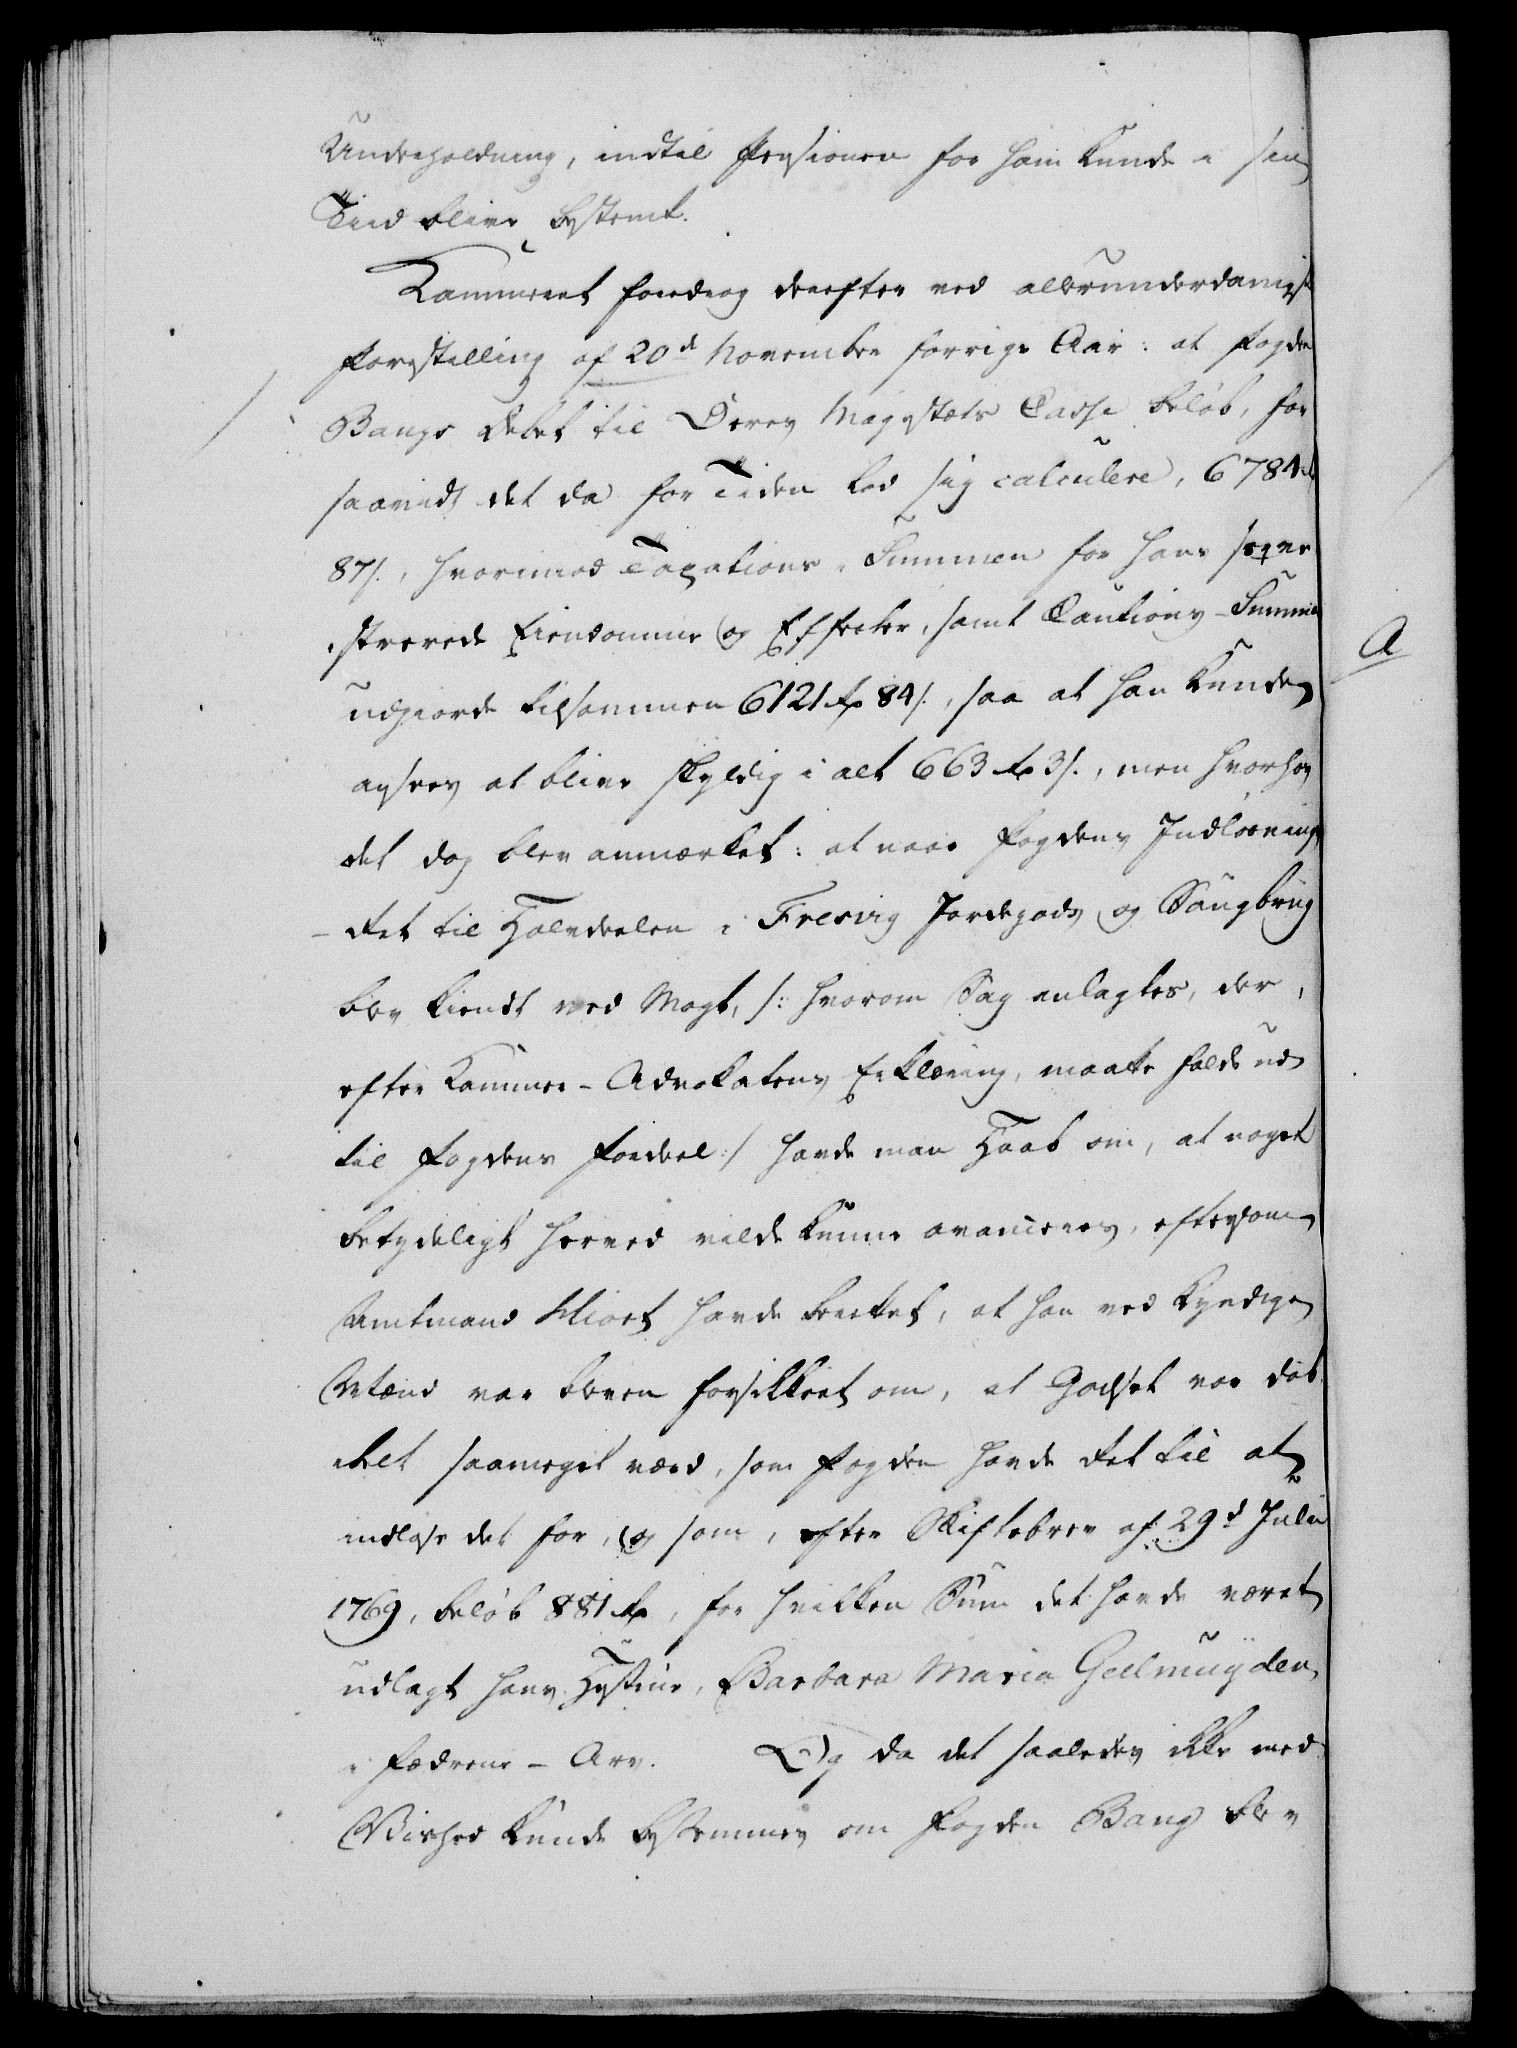 Underholdning, indtil Pensionen for ham kunde i sin
Tiid blive bestemt.
Kammeret foredrog derefter ved allerunderdanigst
Forestilling af 20d November forrige Aar: at Fogden
Bangs Debet til Deres Majestæts Casse beløb, for
saavidt det da for Tiden lod sig calculere, 6784 rd
87 s., hvorimod Taxations-Summen for hans seqve-
strerede Eiendomme og Effecter, samt Cautions-Summen
udgiorde tilsammen 6121 rd 84 s., saa at han kunde
ansees at blive skyldig i alt 663 rd 3 s., men hvorhos
det dog blev anmærket: at naar Fogdens Indløsnings-
Ret til Halvdeelen i Fresvig Jordegods og Saugbrug
blev kiendt ved Magt, /: hvorom Sag anlagtes, der,
efter Kammer-Advokatens Erklæring, maatte falde ud
til Fogdens Fordeel :/ havde man Haab om, at noget
betydeligt herved vilde kunne avanceres, eftersom
Amtmand Hiort havde berettet, at han ved kyndige
Mænd var bleven forsikkret om, at Godset var dob-
belt saameget værd, som Fogden havde Ret til at
indløse det for, og som, efter Skiftebrev af 29d Julii
1769, beløb 881 rd, for hvilken Sum det havde været
udlagt hans Hustrue, Barbara Maria Geelmuyden,
i Fædrene-Arv. Og da det saaledes ikke med
Vished kunde bestemmes om Fogden Bang blev
A